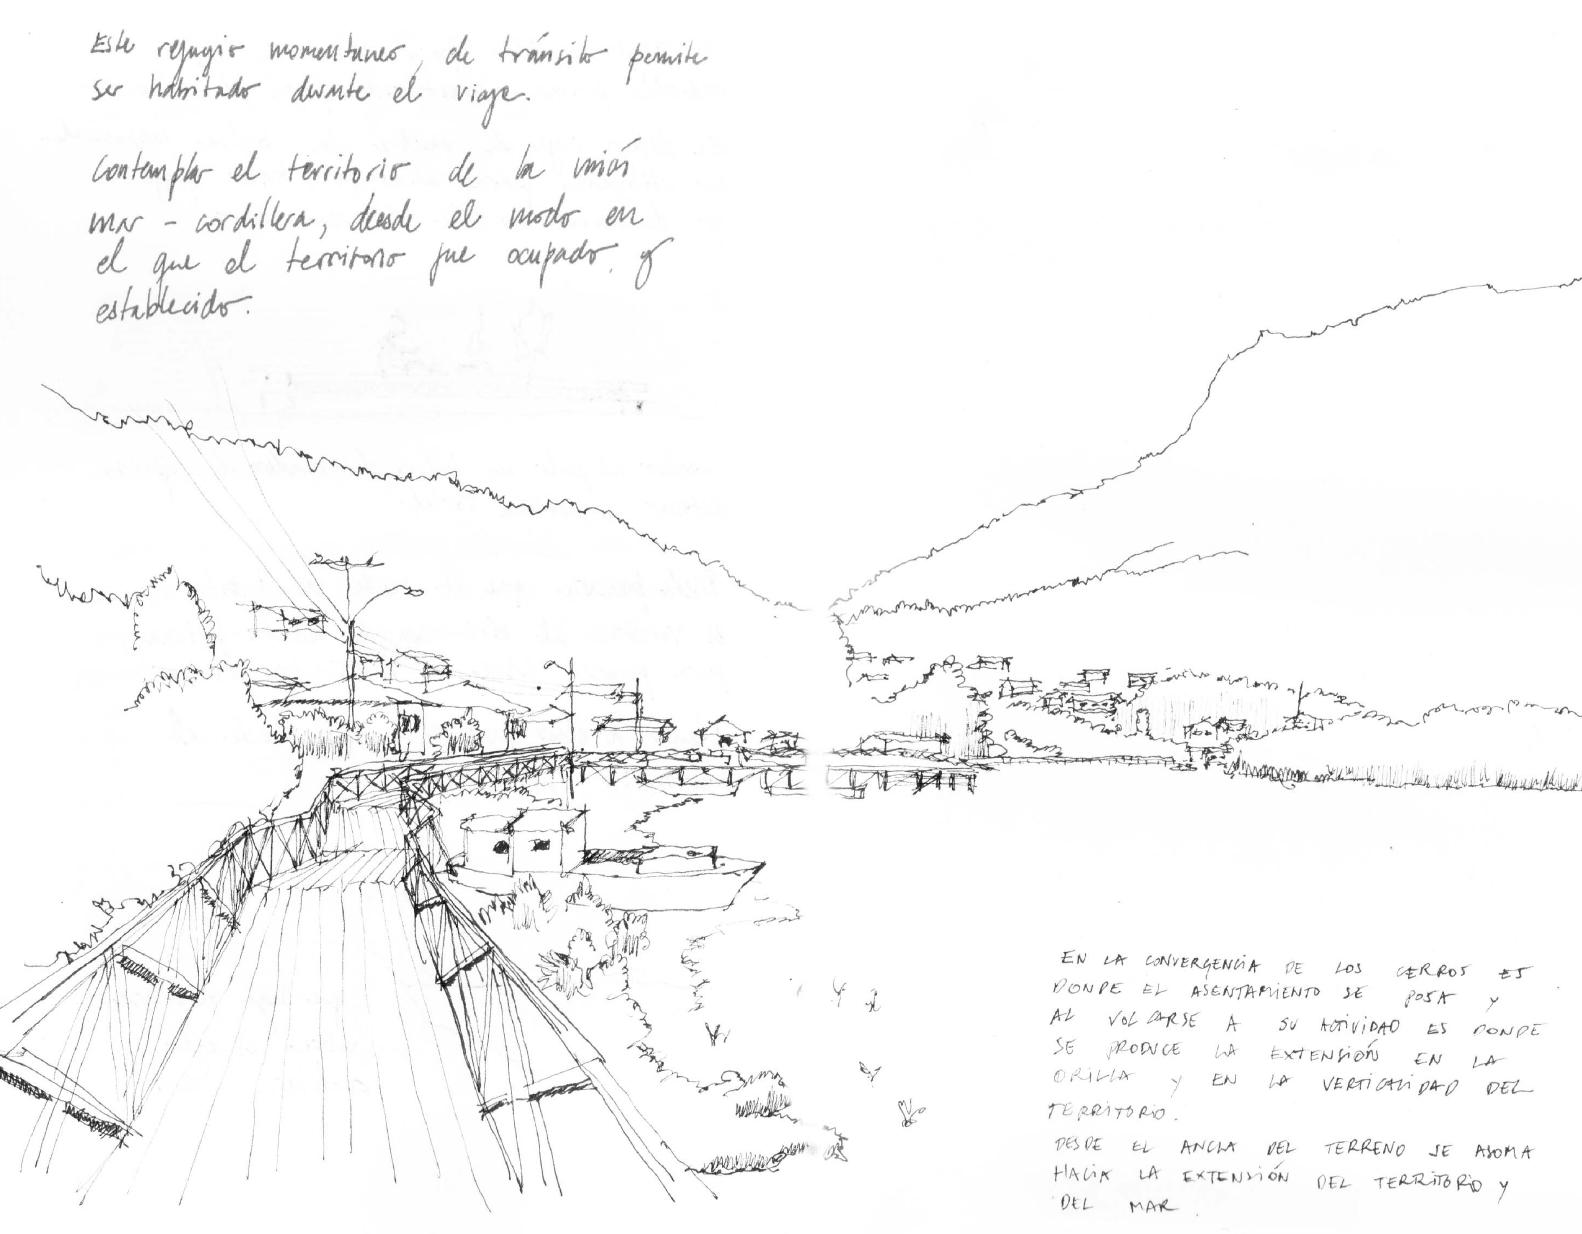 Este refugio momentaneo, de tránsito permite
ser habitado durante el viaje.
Contemplar el territorio de la unión
mar - cordillera, desde el modo en
el que el territorio fue ocupado y
establecido.
EN LA CONVERGENCIA DE LOS CERROS ES
DONDE EL ASENTAMIENTO SE POSA Y
AL VOLCARSE A SU ACTIVIDAD ES DONDE
SE PRODUCE LA EXTENSIÓN EN LA
ORILLA Y EN LA VERTICALIDAD DEL
TERRITORIO.
DESDE EL ANCLA DEL TERRENO SE ASOMA
HACIA LA EXTENSIÓN DEL TERRITORIO Y
DEL MAR.